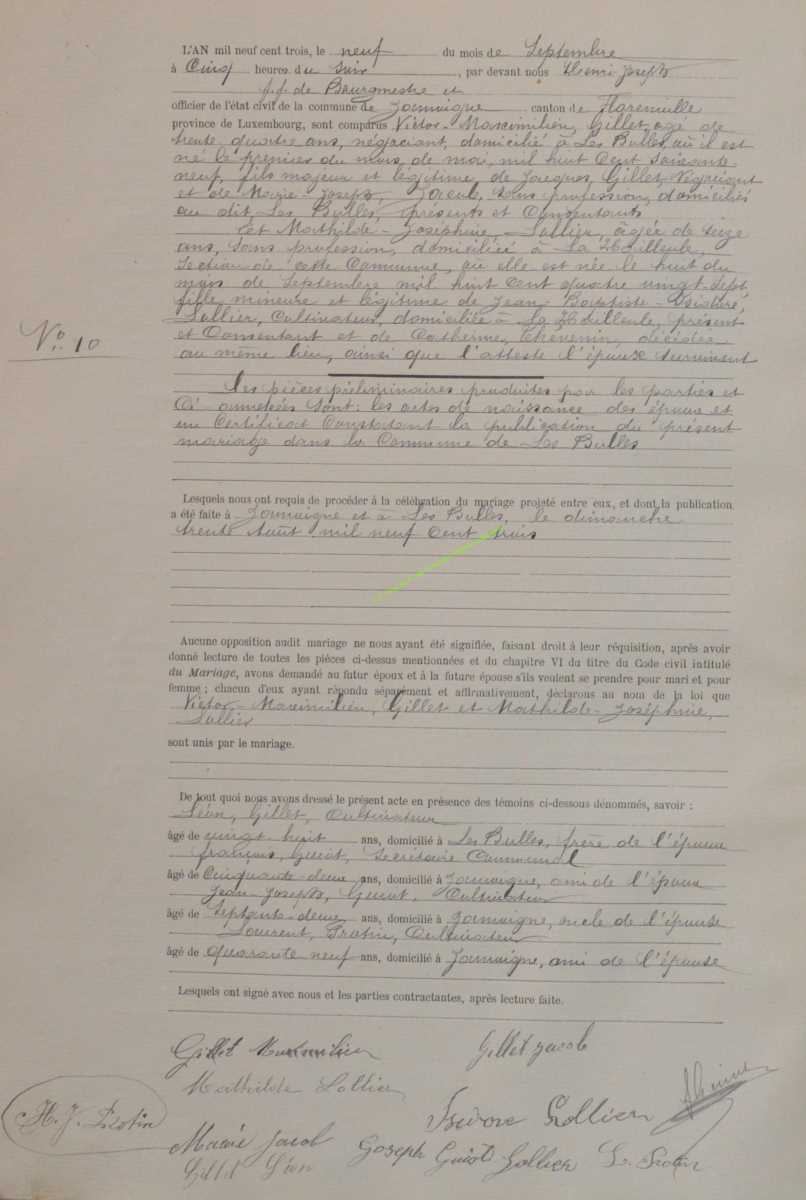 L'AN mil neuf cent trois, le neuf du mois de Septembre
à Cinq heures du Soir, par devant nous Henri Joseph
f.f. de Bourgmestre et
officier de l'état civil de la commune de Jamoigne canton de Florenville
province de Luxembourg, sont comparus Victor-Maximilien, Gillet, agé de
trente quatre ans, négociant, domicilié à Les Bulles, où il est
né le premier du mois de mai, mil huit Cent soixante-
neuf, fils majeur et légitime, de Jacques, Gillet, Négociant
et de Marie-Joseph, Jacob, sans profession, domiciliés
au dit, Les Bulles, présents et Consentants
Et Mathilde-Joséphine, Lallier, agée de seize
ans, sans profession, domiciliée à La Hailleule,
Section de cette Commune, où elle est née le huit du
mois de Septembre mil huit Cent quatre vingt-sept
fille, mineure et légitime de Jean Baptiste-Isidore,
Lallier, Cultivateur, domicilié à La Hailleule, présent
et Consentant et de Catherine, Thévenin, décédée
au même lieu, ainsi que l'atteste l'époux survivant
N° 10
Les pièces préliminaires produites par les parties et
Ci annexées sont: les actes de naissance des époux et
un Certificat Constatant la publication du présent
mariage dans la Commune de Les Bulles
Lesquels nous ont requis de procéder à la célébration du mariage projeté entre eux, et dont la publication
a été faite à Jamoigne et à Les Bulles, le dimanche
trente Août mil neuf Cent trois
Aucune opposition audit mariage ne nous ayant été signifiée, faisant droit à leur réquisition, après avoir
donné lecture de toutes les pièces ci-dessus mentionnées et du chapitre VI du titre du Code civil intitulé
du Mariage, avons demandé au futur époux et à la future épouse s'ils veulent se prendre pour mari et pour
femme ; chacun d'eux ayant répondu séparément et affirmativement, déclarons au nom de la loi que
Victor-Maximilien, Gillet et Mathilde-Joséphine,
Lallier
sont unis par le mariage.
De tout quoi nous avons dressé le présent acte en présence des témoins ci-dessous dénommés, savoir :
Léon, Gillet, Cultivateur
âgé de vingt huit ans, domicilié à Les Bulles, frère de l'époux
français, Guiot, Secrétaire Communal
âgé de Cinquante-deux ans, domicilié à Jamoigne, ami de l'époux
Jean-Joseph, Guiot, Cultivateur
âgé de Septante-deux ans, domicilié à Jamoigne, oncle de l'épouse
Laurent, Protin, Cultivateur
âgé de quarante neuf ans, domicilié à Jamoigne, ami de l'épouse
Lesquels ont signé avec nous et les parties contractantes, après lecture faite.
Gillet Maximilien Gillet Jacob
Mathilde Lallier
H. J. Protin Isidore Lallier
Marie Jacob Joseph Guiot Lallier L. Protin
Gillet Léon